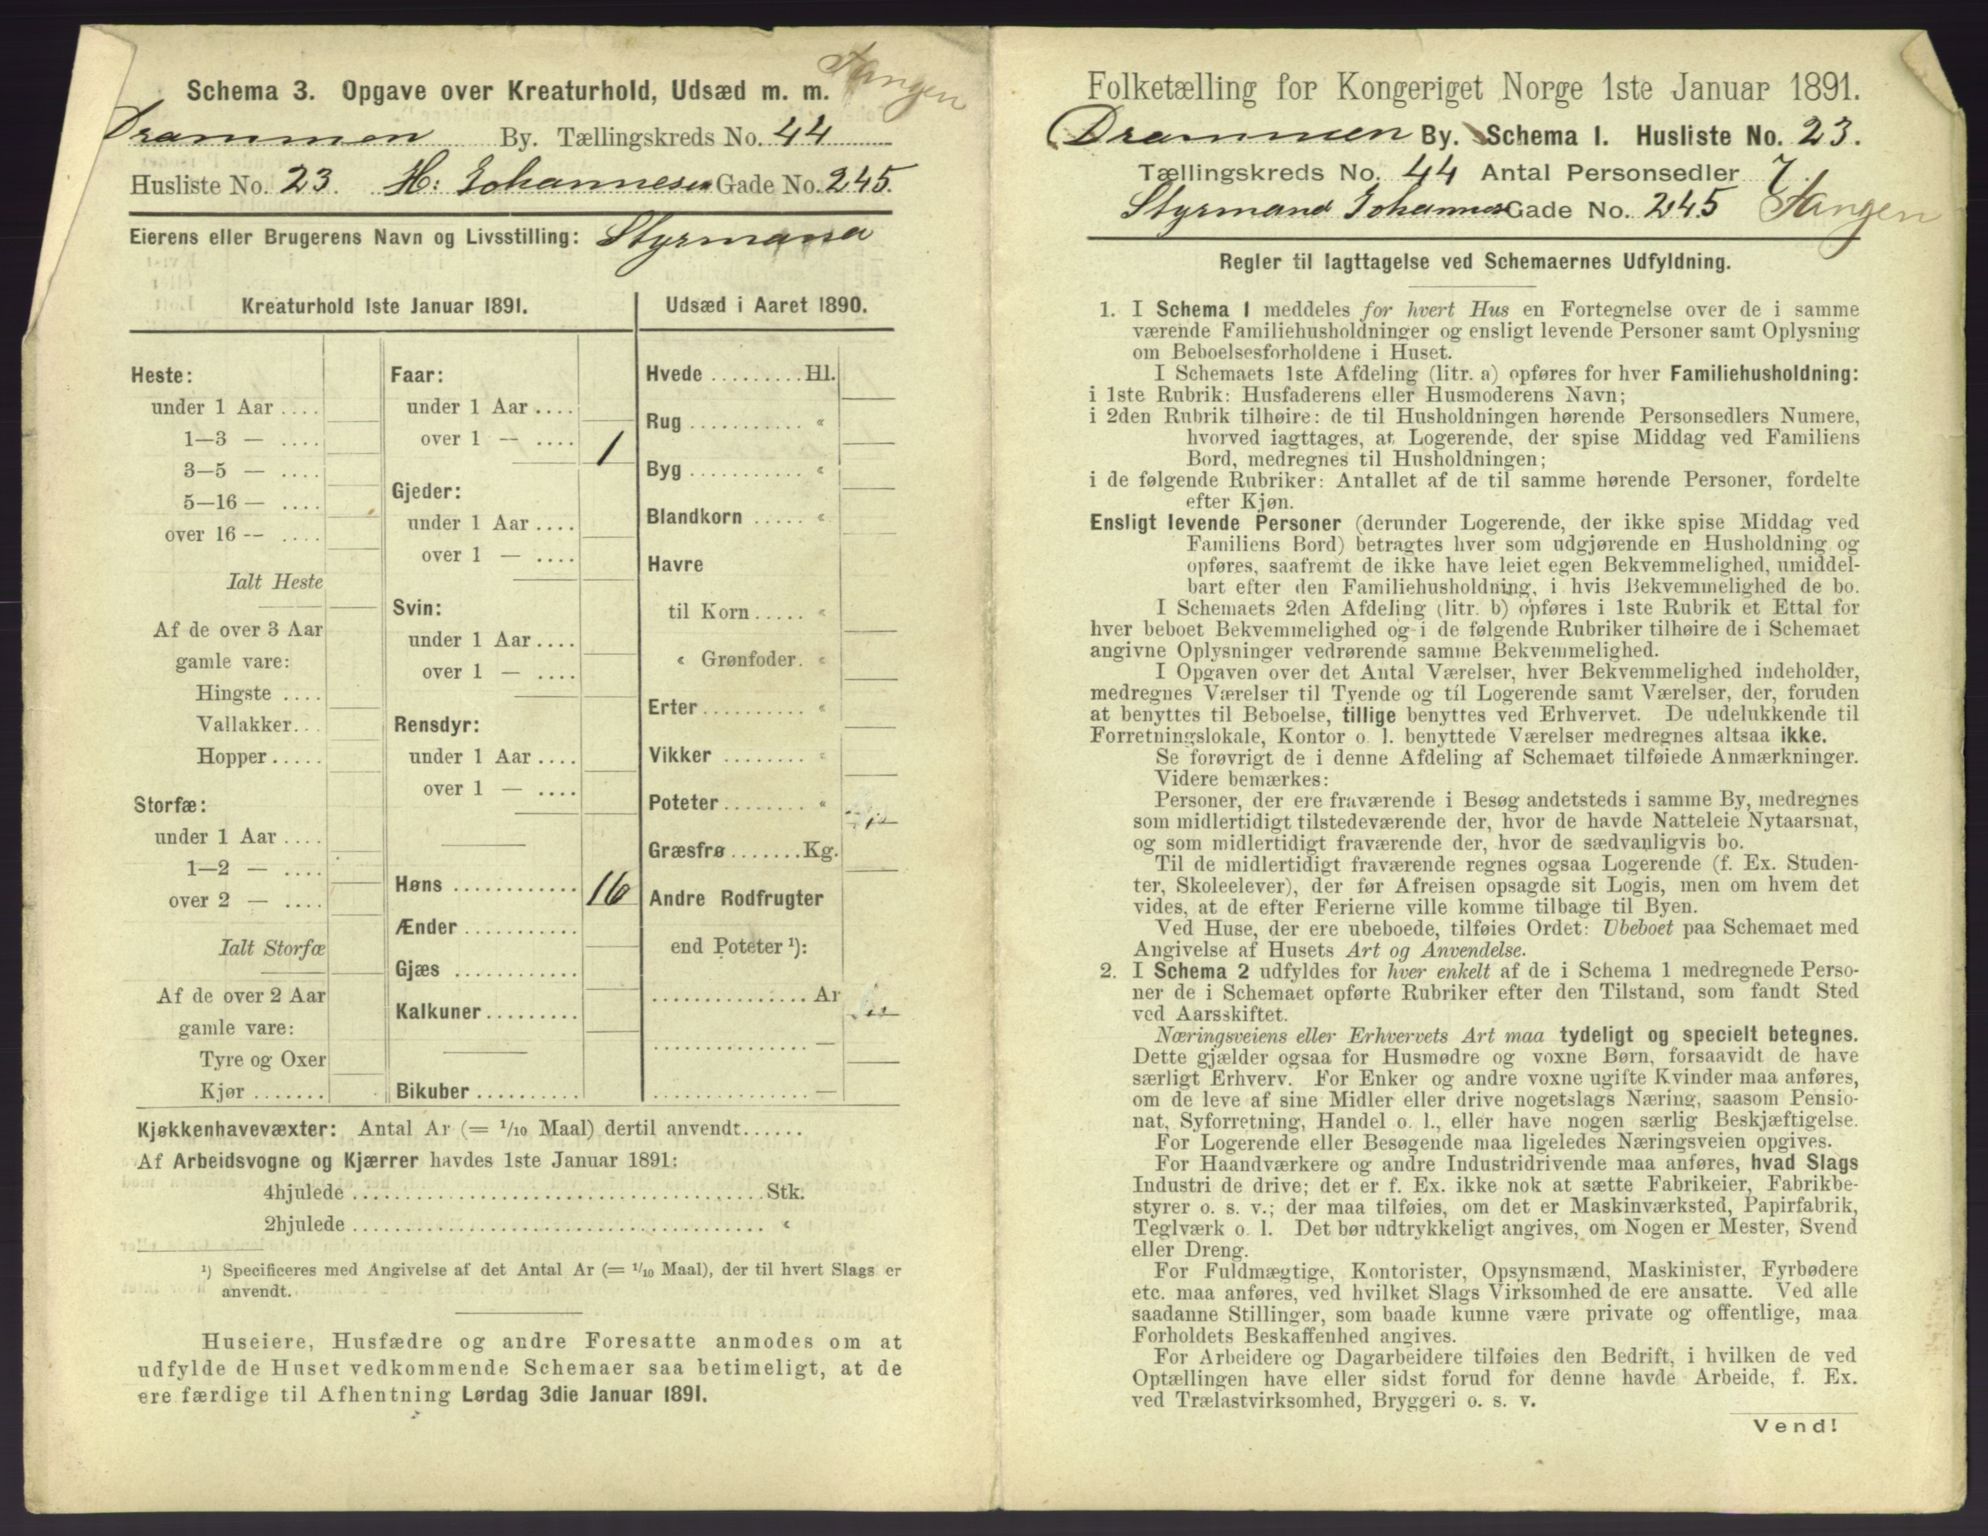 Tangen
Schema 3. Opgave over Kreaturhold, Udsæd m. m.
Drammen By. Tællingskreds No. 44
Husliste No. 23. H: Johannesen Gade No. 245.
Eierens eller Brugerens Navn og Livsstilling: Styrmand
Kreaturhold 1ste Januar 1891.
Heste:
under 1 Aar ....
1—3 — ....
3—5 — ....
5—16 — ....
over 16 -- ....
Ialt Heste
Af de over 3 Aar
gamle vare:
Hingste ....
Vallakker...
Hopper.....
Storfæ:
under 1 Aar ....
1—2 — ....
over 2 — ....
Ialt Storfæ
Af de over 2 Aar
gamle vare:
Tyre og Oxer
Kjør .......
Faar:
under 1 Aar....
over 1 — .... 1
Gjeder:
under 1 Aar....
over 1 — ....
Svin:
under 1 Aar....
over 1 — ....
Rensdyr:
under 1 Aar....
over 1 — ....
Høns ............ 16
Ænder...........
Gjæs ............
Kalkuner.........
Bikuber..........
Udsæd i Aaret 1890.
Hvede .........Hl.
Rug ........... «
Byg ........... «
Blandkorn ..... «
Havre
til Korn..... «
« Grønfoder. «
Erter.......... «
Vikker ........ «
Poteter........ «
Græsfrø.......Kg.
Andre Rodfrugter
end Poteter ¹):
...............Ar
............... —
............... —
Kjøkkenhavevæxter: Antal Ar (= 1/10 Maal) dertil anvendt......
Af Arbeidsvogne og Kjærrer havdes 1ste Januar 1891:
4hjulede ........................................Stk.
2hjulede ........................................ «
¹) Specificeres med Angivelse af det Antal Ar (= 1/10 Maal), der til hvert Slags er
anvendt.
Huseiere, Husfædre og andre Foresatte anmodes om at
udfylde de Huset vedkommende Schemaer saa betimeligt, at de
ere færdige til Afhentning Lørdag 3die Januar 1891.
Folketælling for Kongeriget Norge 1ste Januar 1891.
Drammen By. Schema I. Husliste No. 23.
Tællingskreds No. 44 Antal Personsedler 7.
Styrmand Johannes Gade No. 245 Tangen
Regler til Iagttagelse ved Schemaernes Udfyldning.
1. I Schema 1 meddeles for hvert Hus en Fortegnelse over de i samme
værende Familiehusholdninger og ensligt levende Personer samt Oplysning
om Beboelsesforholdene i Huset.
I Schemaets 1ste Afdeling (litr. a) opføres for hver Familiehusholdning:
i 1ste Rubrik: Husfaderens eller Husmoderens Navn;
i 2den Rubrik tilhøire: de til Husholdningen hørende Personsedlers Numere,
hvorved iagttages, at Logerende, der spise Middag ved Familiens
Bord, medregnes til Husholdningen;
i de følgende Rubriker: Antallet af de til samme hørende Personer, fordelte
efter Kjøn.
Ensligt levende Personer (derunder Logerende, der ikke spise Middag ved
Familiens Bord) betragtes hver som udgjørende en Husholdning og
opføres, saafremt de ikke have leiet egen Bekvemmelighed, umiddel-
bart efter den Familiehusholdning, i hvis Bekvemmelighed de bo.
I Schemaets 2den Afdeling (litr. b) opføres i 1ste Rubrik et Ettal for
hver beboet Bekvemmelighed og i de følgende Rubriker tilhøire de i Schemaet
angivne Oplysninger vedrørende samme Bekvemmelighed.
I Opgaven over det Antal Værelser, hver Bekvemmelighed indeholder,
medregnes Værelser til Tyende og til Logerende samt Værelser, der, foruden
at benyttes til Beboelse, tillige benyttes ved Erhvervet. De udelukkende til
Forretningslokale, Kontor o. l. benyttede Værelser medregnes altsaa ikke.
Se forøvrigt de i denne Afdeling af Schemaet tilføiede Anmærkninger.
Videre bemærkes:
Personer, der ere fraværende i Besøg andetsteds i samme By, medregnes
som midlertidigt tilstedeværende der, hvor de havde Natteleie Nytaarsnat,
og som midlertidigt fraværende der, hvor de sædvanligvis bo.
Til de midlertidigt fraværende regnes ogsaa Logerende (f. Ex. Studen-
ter, Skoleelever), der før Afreisen opsagde sit Logis, men om hvem det
vides, at de efter Ferierne ville komme tilbage til Byen.
Ved Huse, der ere ubeboede, tilføies Ordet: Ubeboet paa Schemaet med
Angivelse af Husets Art og Anvendelse.
2. I Schema 2 udfyldes for hver enkelt af de i Schema 1 medregnede Perso-
ner de i Schemaet opførte Rubriker efter den Tilstand, som fandt Sted
ved Aarsskiftet.
Næringsveiens eller Erhvervets Art maa tydeligt og specielt betegnes.
Dette gjælder ogsaa for Husmødre og voxne Børn, forsaavidt de have
særligt Erhverv. For Enker og andre voxne ugifte Kvinder maa anføres,
om de leve af sine Midler eller drive nogetslags Næring, saasom Pensio-
nat, Syforretning, Handel o. l., eller have nogen særlig Beskjæftigelse.
For Logerende eller Besøgende maa ligeledes Næringsveien opgives.
For Haandværkere og andre Industridrivende maa anføres, hvad Slags
Industri de drive; det er f. Ex. ikke nok at sætte Fabrikeier, Fabrikbe-
styrer o. s. v.; der maa tilføies, om det er Maskinværksted, Papirfabrik,
Teglværk o. l. Det bør udtrykkeligt angives, om Nogen er Mester, Svend
eller Dreng.
For Fuldmægtige, Kontorister, Opsynsmænd, Maskinister, Fyrbødere
etc. maa anføres, ved hvilket Slags Virksomhed de ere ansatte. Ved alle
saadanne Stillinger, som baade kunne være private og offentlige, maa
Forholdets Beskaffenhed angives.
For Arbeidere og Dagarbeidere tilføies den Bedrift, i hvilken de ved
Optællingen have eller sidst forud for denne havde Arbeide, f. Ex.
ved Trælastvirksomhed, Bryggeri o. s. v.
Vend!